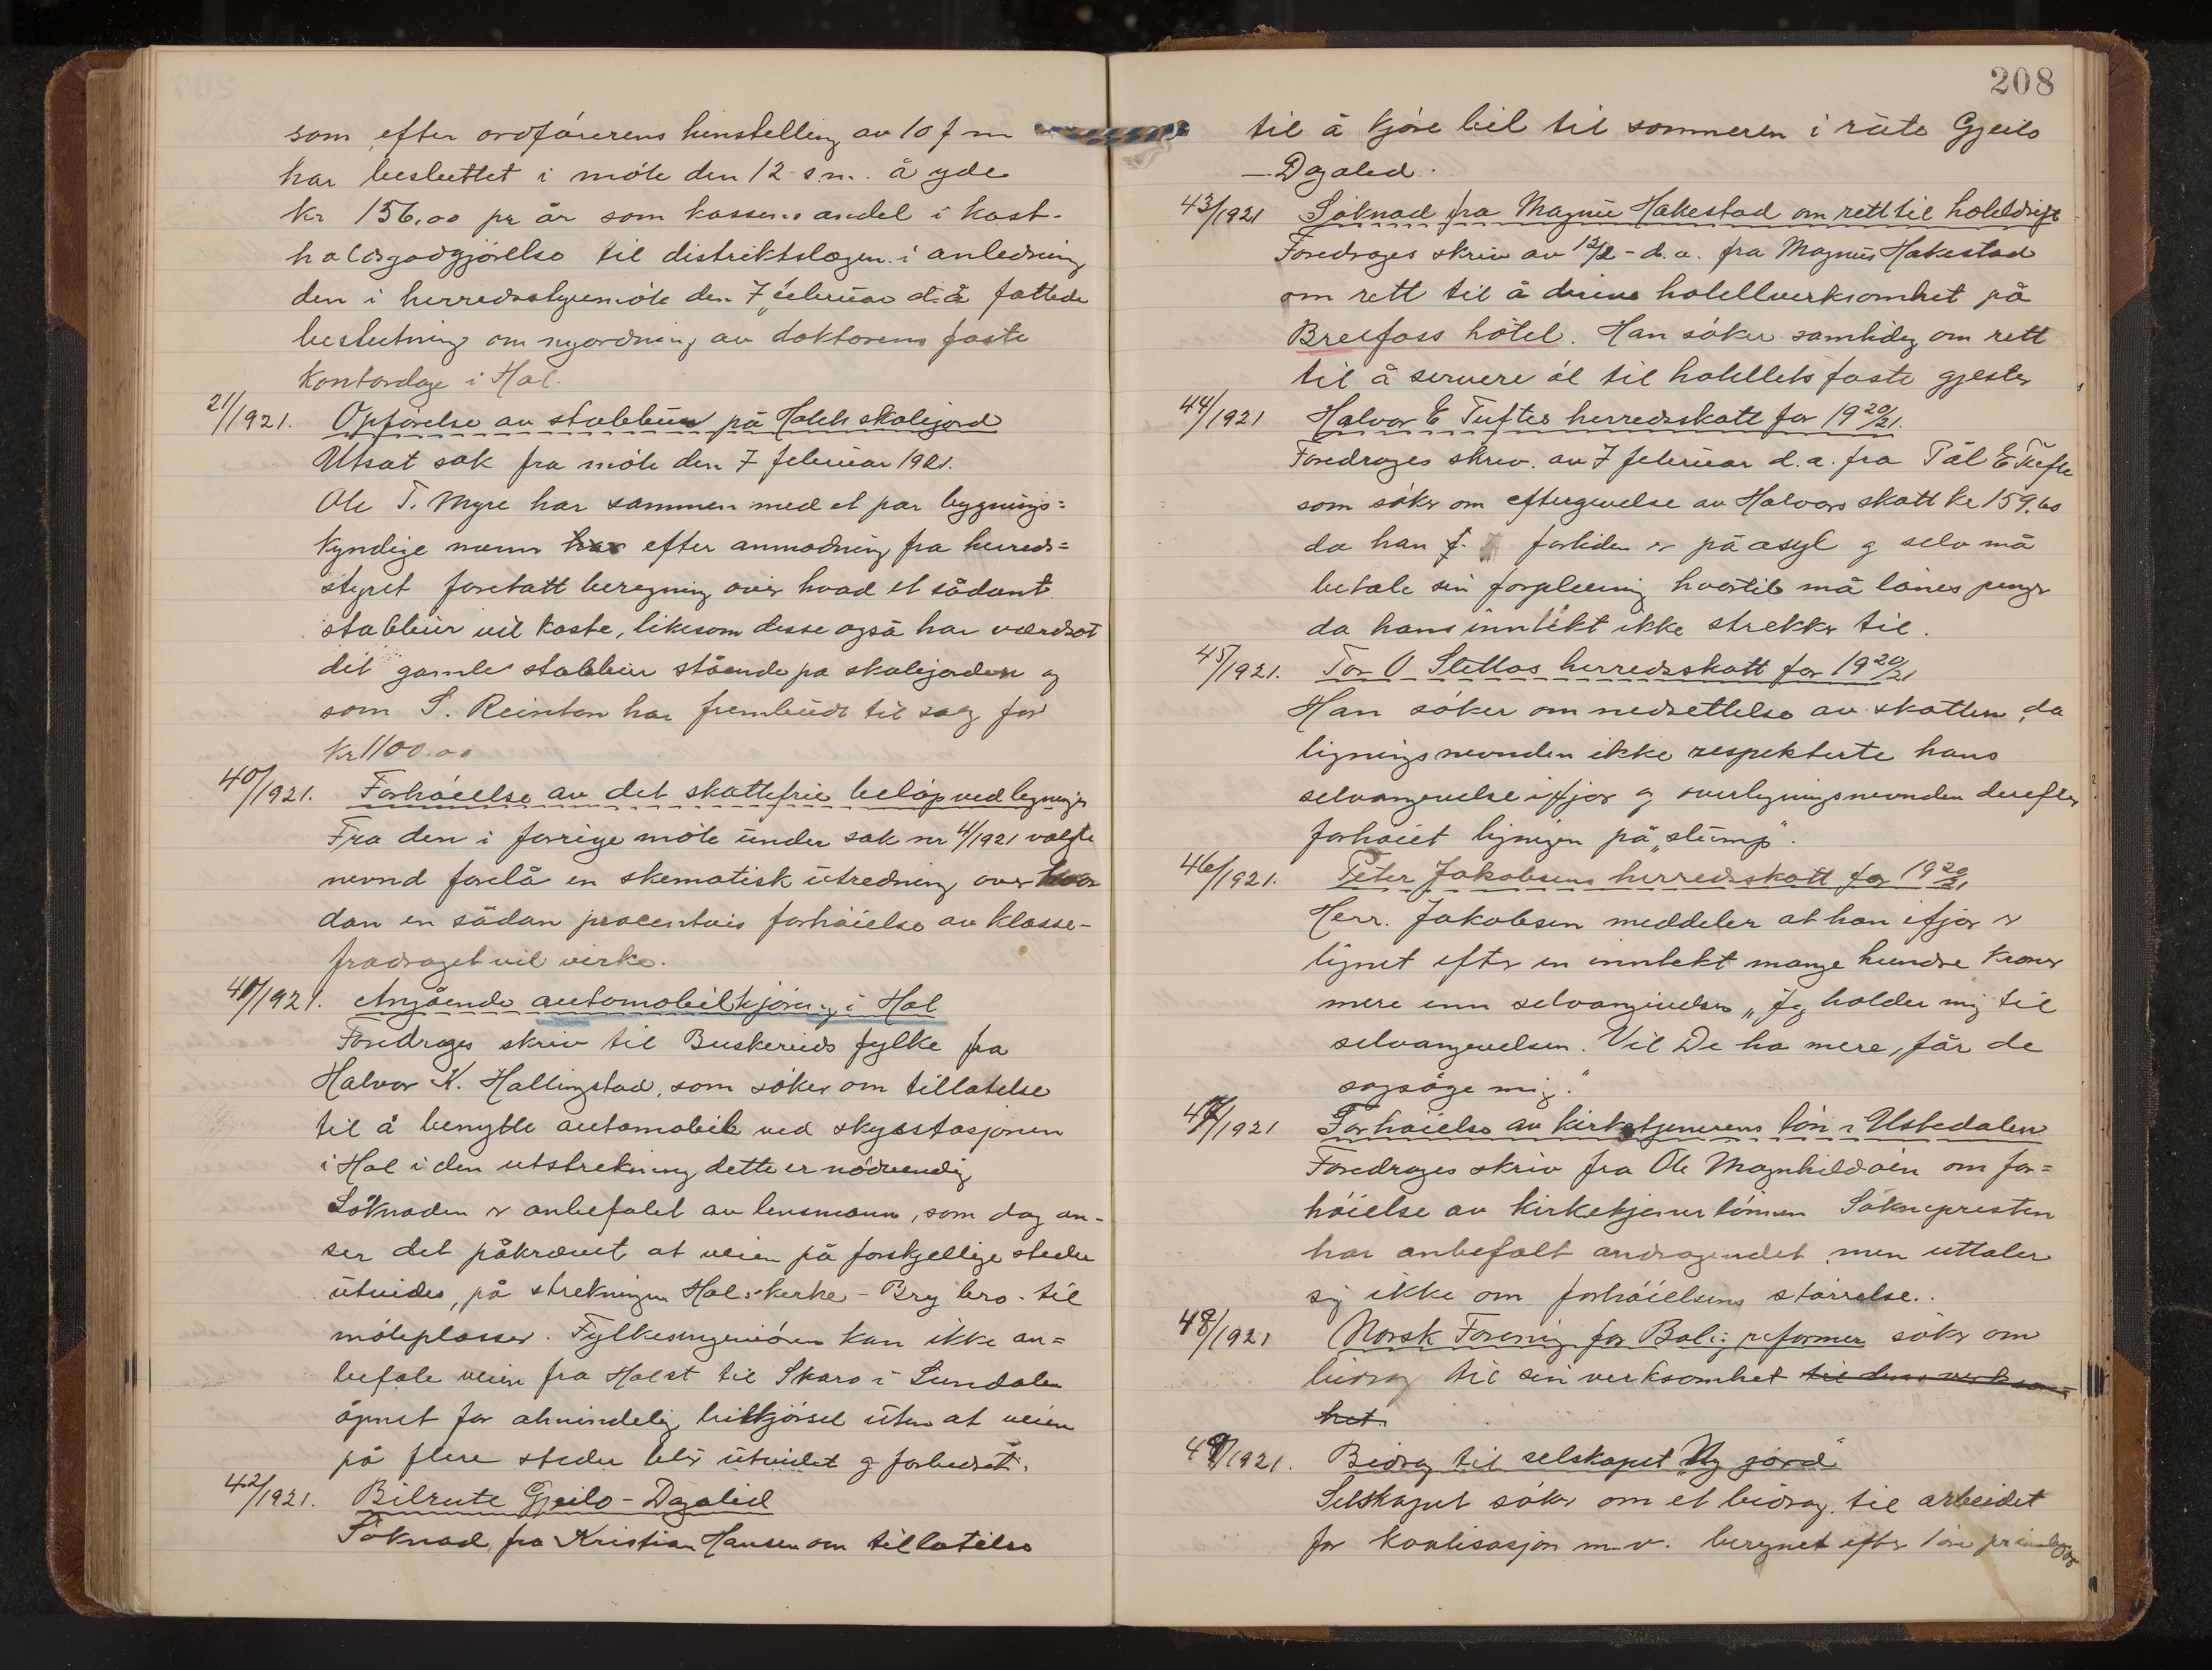 som efter ordførerens henstelling av 10 f m
har besluttet i møte den 12 s.m. å yde
kr 156,00 pr år som kassens andel i kost-
holdsgodgjørelse til distriktslægen i anledning
den i herredsstyremøte den 7 februar d.å fattede
beslutning om nyordning av doktorens faste
kontordage i Hol.
21/1921. Opførelse av stabbur på Holets skolejord
Utsat sak fra møte den 7 februar 1921.
Ole T. Myre har sammen med et par bygnings=
kyndige menn har efter anmodning fra herreds=
styret foretatt beregning over hvad et sådant
stabbur vil koste, likesom desse også har værdsat
det gamle stabbur stående på skolejorden og
som S. Reinton har frembudt til salg for
kr 1100.00
40/1921. Forhøielse av det skattefrie beløp ved ligningen
Fra den i forrige møte under sak nr 4/1921 valgte
nevnd forelå en skematisk utredning over hvor
dan en sådan procentvis forhøielse av klasse-
fradraget vil virke.
41/1921. Angående automobilkjøring i Hol
Foredrages skriv til Buskeruds fylke fra
Halvor K. Hallingstad, som søker om tillatelse
til å benytte automobil ved skysstasjonen
i Hol i den utstrekning dette er nødvendig
Søknaden er anbefalet av lensmann, som dog an-
ser det påkrævet at veien på forskjellige steder
utvides, på strekningen Hols kirke - Bry bro. til
møteplasser. Fylkesingeniøren kan ikke an=
befale veien fra Holet til Skaro i Sundalen
åpnet for almindelig bilkjørsel uten at veien
på flere steder blir utvidet og forbedret.
42/1921. Bilrute Gjeilo - Dagalid
Søknad fra Kristian Hansen om tillatelse
208
til å kjøre bil til sommeren i rute Gjeilo
- Dagalid.
43/1921 Søknad fra Magnus Hakestad om rett til hoteldrift
Foredrages skriv av 12/2 - d.a. fra Magnus Hakestad
om rett til å drive hotellverksomhet på
Breifoss hôtel. Han søker samtidig om rett
til å servere øl til hotellets faste gjester
44/1921 Halvor E Tuftes herredsskatt for 1920/21.
Foredrages skriv. av 7 februar d.a. fra Pål E Tufte
som søker om eftergivelse av Halvors skatt kr 159.60
da han f. fortiden er på asyl og selv må
betale sin forpleining hvortil må lånes penger
da hans inntekt ikke strekker til.
45/1921. Tor O Slettos herredsskatt for 1920/21
Han søker om nedsettelse av skatten, da
ligningsnevnden ikke respekterte hans
selvangivelse ifjor og overligningsnevnden derefter
forhøiet ligningen på "slump".
46/1921. Peter Jakobsens herredsskatt for 1920/21
Herr. Jakobsen meddeler at han ifjor er
lignet efter en inntekt mange hundre kroner
mere enn selvangivelsen "Jeg holder mig til
selvangivelsen. Vil De ha mere, får de
sagsøge mig."
47/1921 Forhøielse av kirketjenerens løn i Ustedalen
Foredrages skriv fra Ole Magnhildøin om for=
høielse av kirketjenerlønnen Søknepresten
har anbefalt andragendet, men uttaler
sig ikke om forhøielsens størrelse.
48/1921 Norsk Forening for Boligreformer søker om
bidrag til sin verksomhet til dens verksom
het.
49/1921. Bidrag til selskapet "Ny jord"
Selskapet søker om et bidrag til arbeidet
for koalisasjon m.v. beregnet efter 1 øre pr innbygger